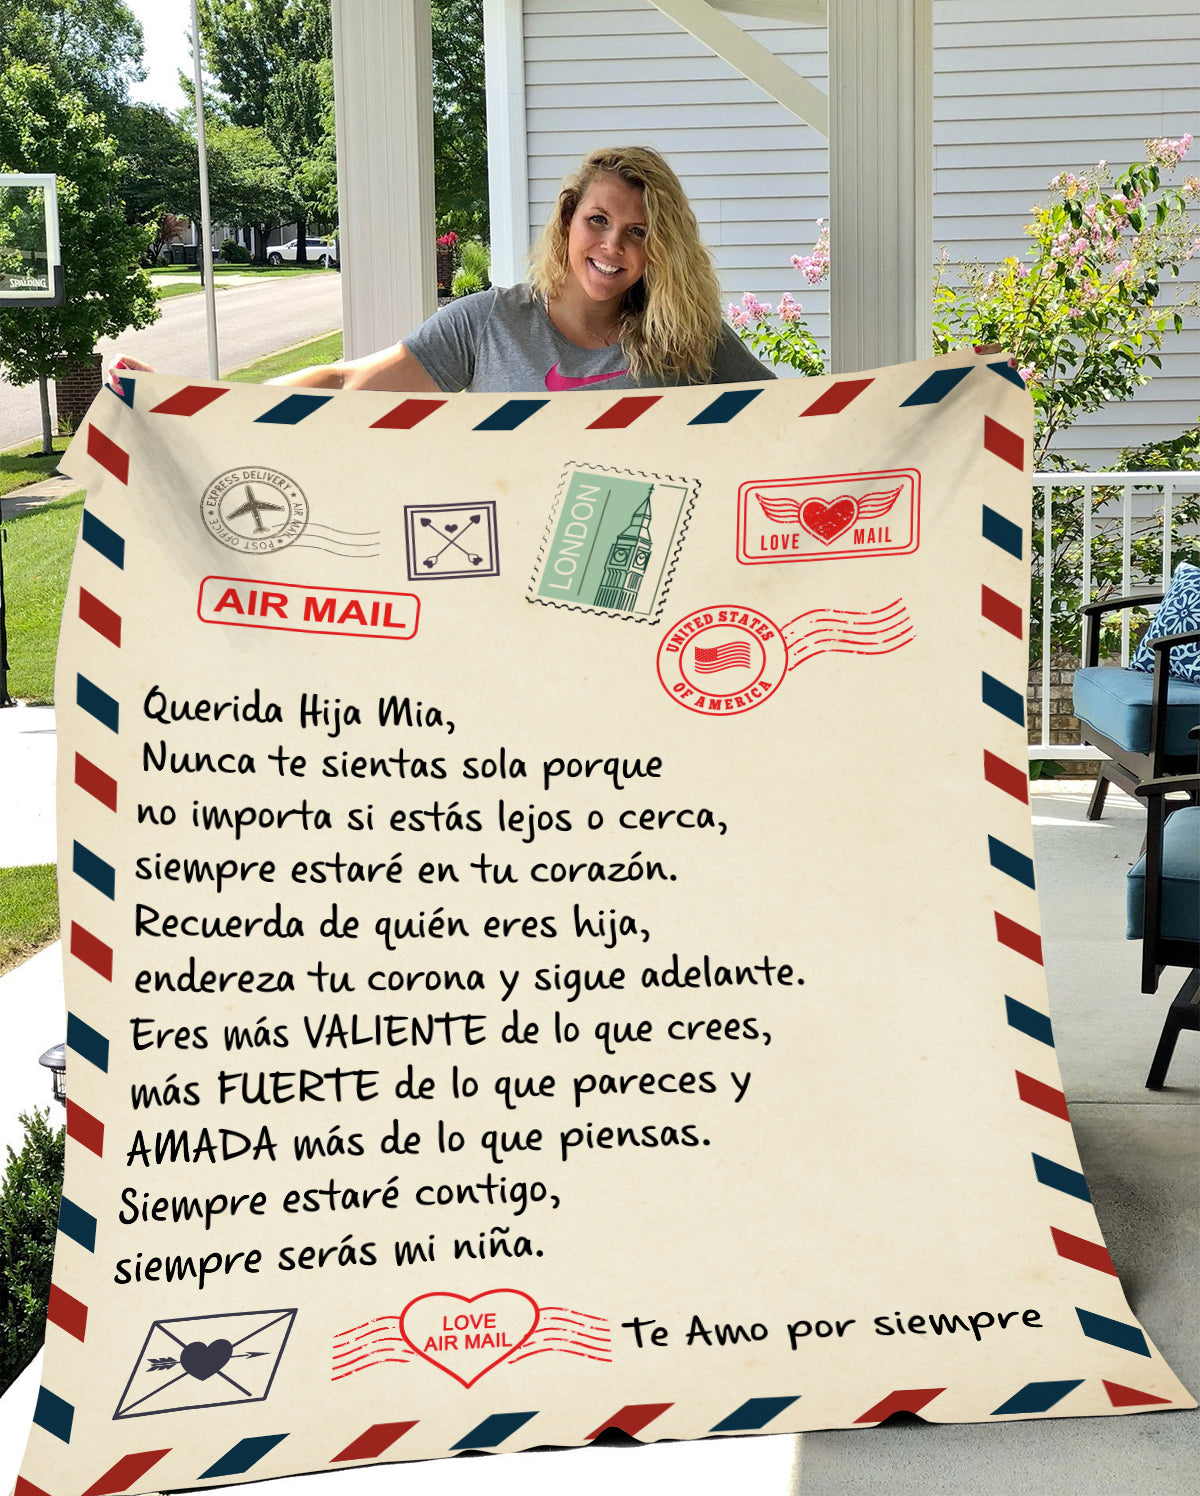 SPALDING
EXPRESS DELIVERY ★ AIR MAIL ★ POST OFFICE ★
LONDON
LOVE MAIL
AIR MAIL
UNITED STATES
OF AMERICA
Querida Hija Mia,
Nunca te sientas sola porque
no importa si estás lejos o cerca,
siempre estaré en tu corazón.
Recuerda de quién eres hija,
endereza tu corona y sigue adelante.
Eres más VALIENTE de lo que crees,
más FUERTE de lo que pareces y
AMADA más de lo que piensas.
Siempre estaré contigo,
siempre serás mi niña.
LOVE
AIR MAIL
Te Amo por siempre